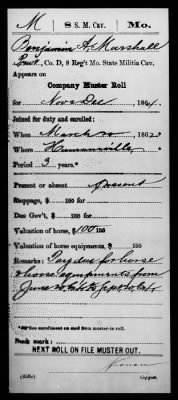 M 8 S. M. Cav. Mo.
Benjamin A. Marshall
Privt, Co. D, 8 Reg't Mo. State Militia Cav.
Appears on
Company Muster Roll
for Nov & Dec, 1864.
Joined for duty and enrolled:
When March 20, 1862.
Where Humansville,
Period 3 years.*
Present or absent Present
Stoppage, $ 100 for
Due Gov't, $ 100 for
Valuation of horse, $ 100/100
Valuation of horse equipments, $ 100
Remarks: Pay due for horse
& horse equipments from
June to Sept
*See enrollment on card from muster-in roll.
Book mark:
NEXT ROLL ON FILE MUSTER OUT.
Copyist.